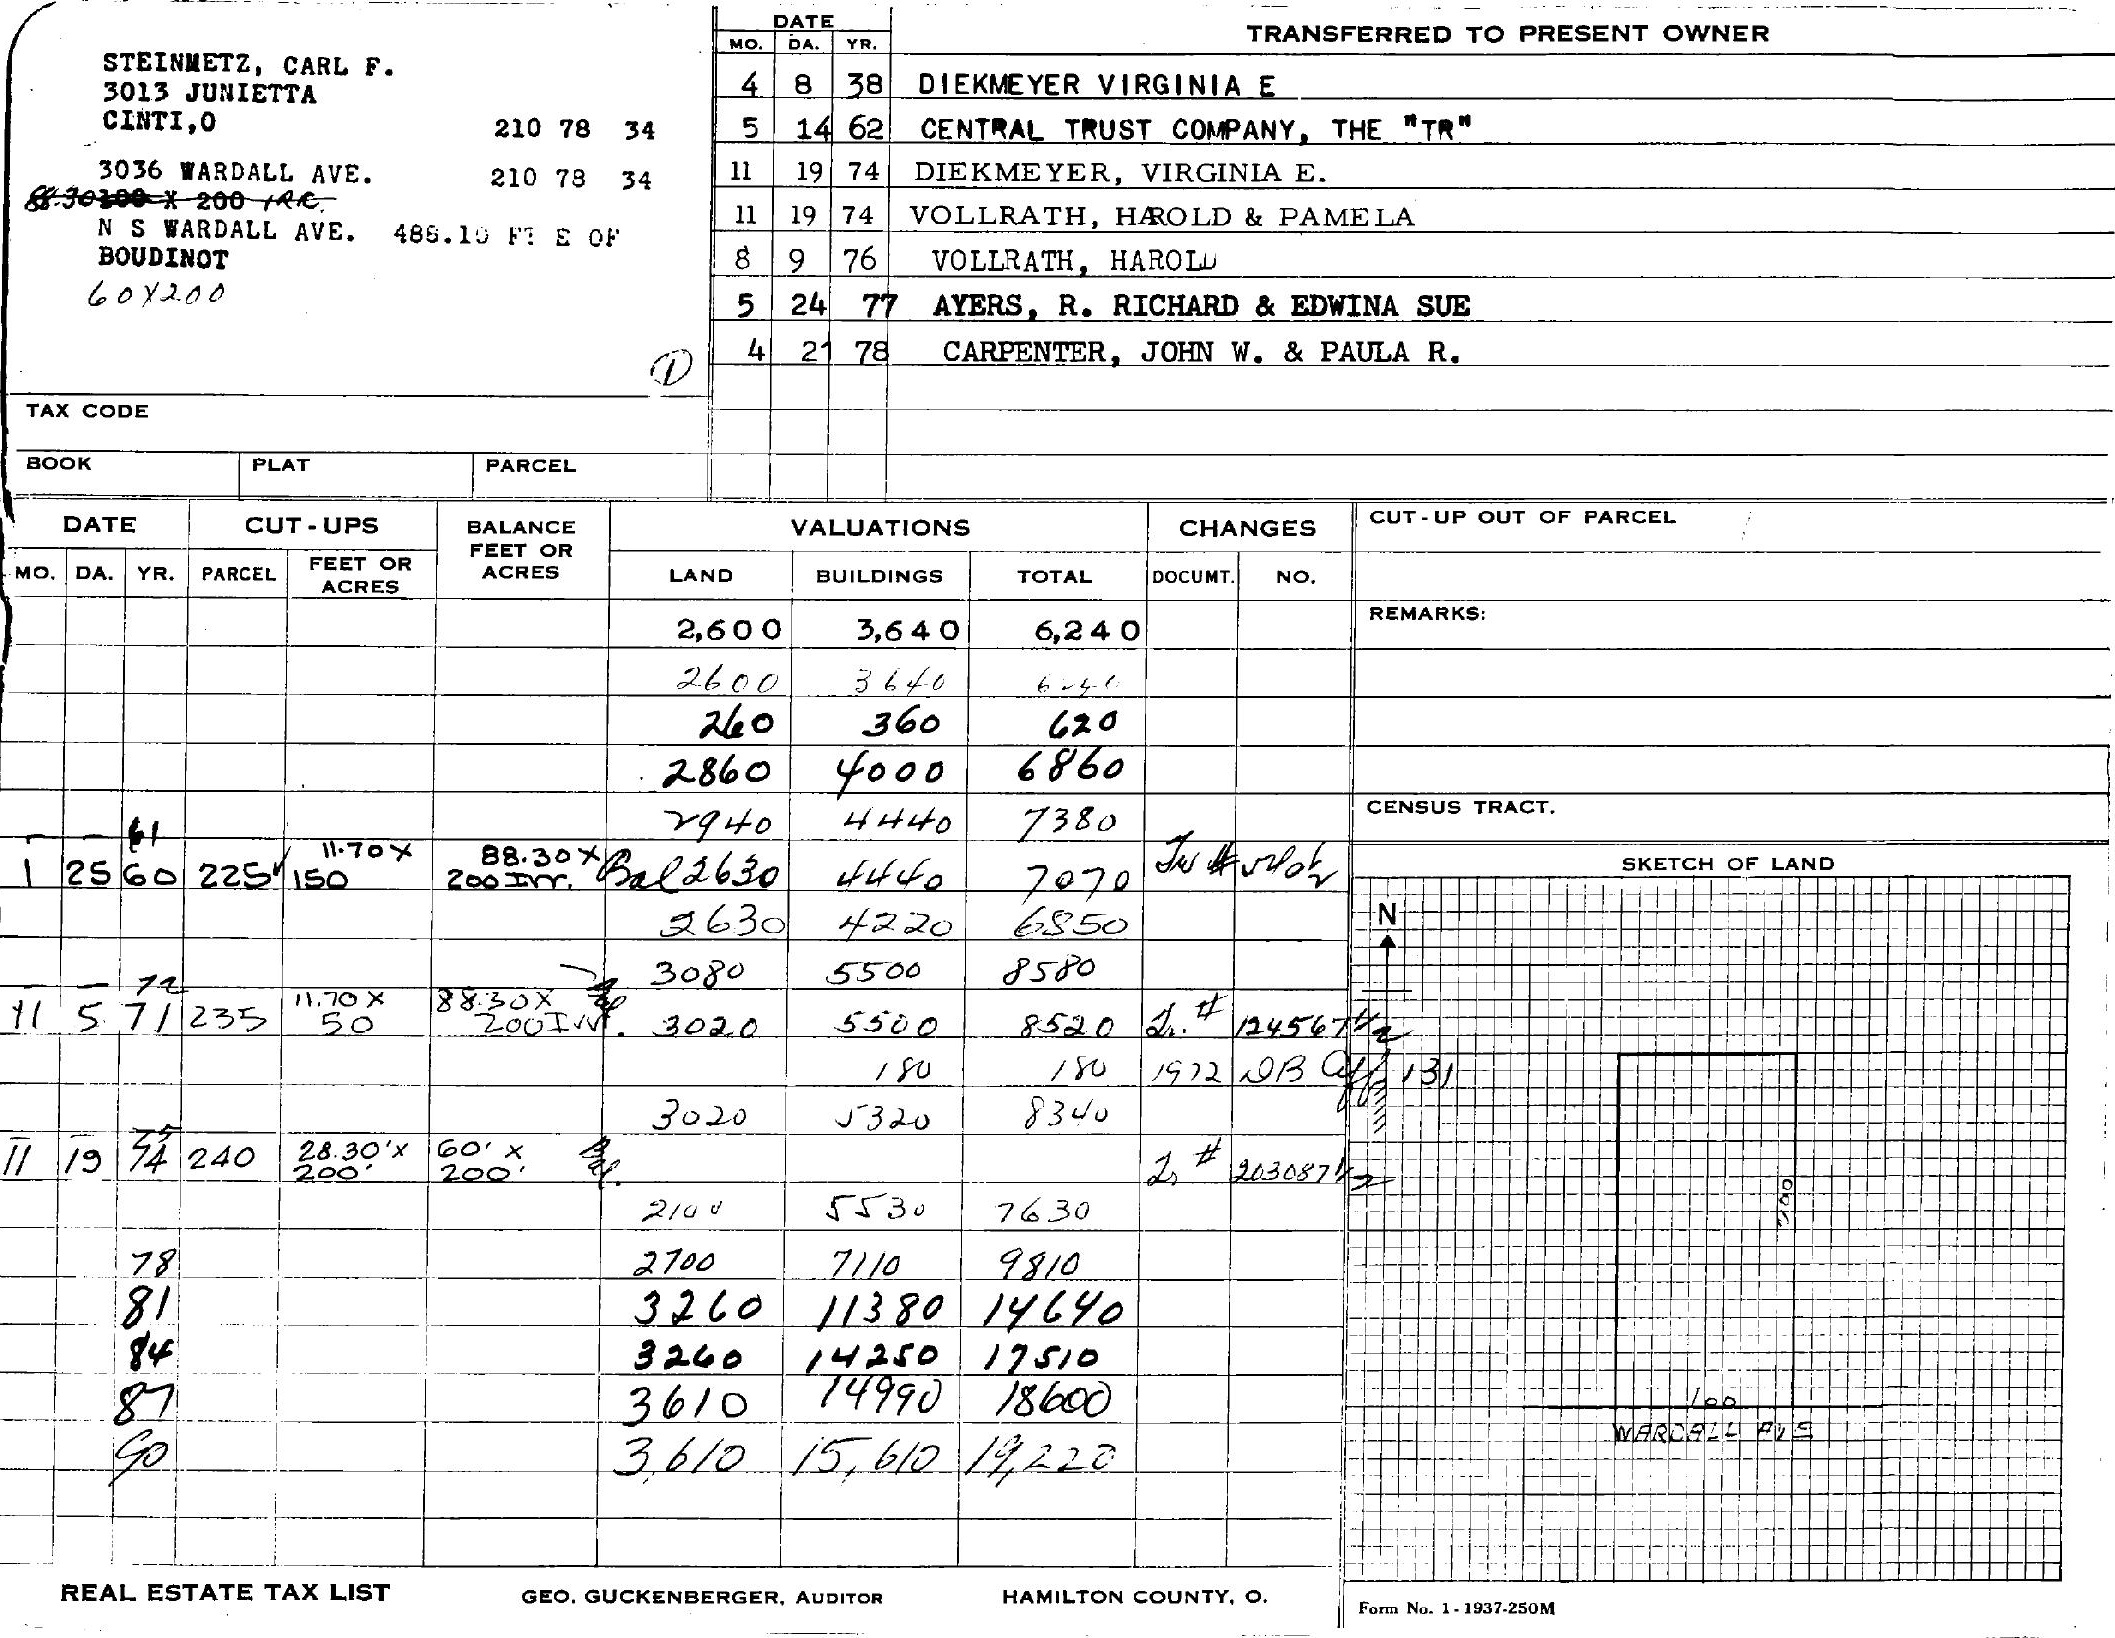 STEINMETZ, CARL F.
3013 JUNIETTA
CINTI,O
210 78 34
3036 WARDALL AVE. 210 78 34
88.30 X 200 IRR.
N S WARDALL AVE. 486.10 FT E OF
BOUDINOT
60X200
1
TAX CODE
BOOK PLAT PARCEL
DATE
MO. DA. YR. TRANSFERRED TO PRESENT OWNER
4 8 38 DIEKMEYER VIRGINIA E
5 14 62 CENTRAL TRUST COMPANY, THE "TR"
11 19 74 DIEKMEYER, VIRGINIA E.
11 19 74 VOLLRATH, HAROLD & PAMELA
8 9 76 VOLLRATH, HAROLD
5 24 77 AYERS, R. RICHARD & EDWINA SUE
4 21 78 CARPENTER, JOHN W. & PAULA R.
DATE CUT-UPS BALANCE FEET OR ACRES VALUATIONS CHANGES
MO. DA. YR. PARCEL FEET OR ACRES LAND BUILDINGS TOTAL DOCUMT. NO.
2,600 3,640 6,240
2600 3640 6240
260 360 620
2860 4000 6860
2940 4440 7380
61
1 25 60 225 11.70 X 150 88.30 X 200 Irr. Bal 2630 4440 7070
2630 4220 6850
3080 5500 8580
72
11 5 71 235 11.70 X 50 88.30 X 200 Irr. 3020 5500 8520 Tr. # 124567 1/2
180 180 1972 DB Aff 131
3020 5320 8340
75
11 19 74 240 28.30' X 200' 60' X 200' Tr # 203087 1/2
2100 5530 7630
78 2700 7110 9810
81 3260 11380 14640
84 3260 14250 17510
87 3610 14990 18600
90 3,610 15,610 19,220
CUT-UP OUT OF PARCEL
REMARKS:
CENSUS TRACT.
SKETCH OF LAND
N
200
100
WARDALL AVE
REAL ESTATE TAX LIST GEO. GUCKENBERGER, AUDITOR HAMILTON COUNTY, O.
Form No. 1-1937-250M